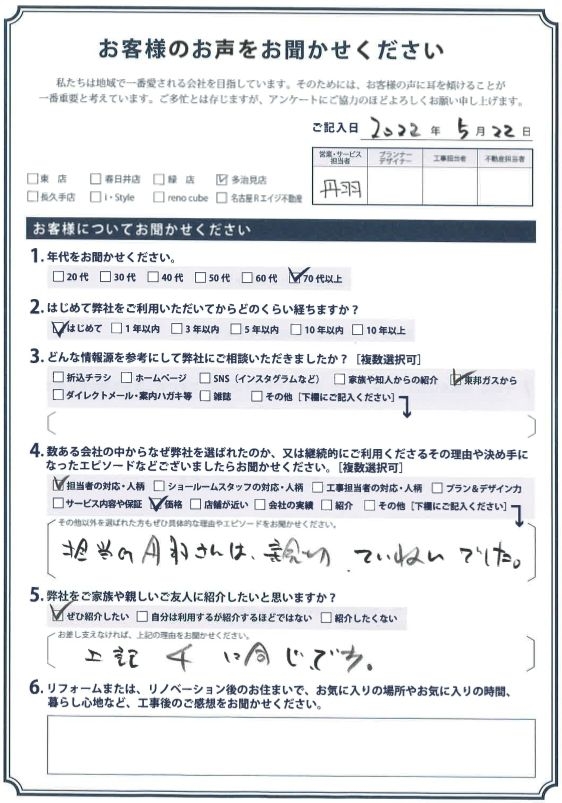 お客様のお声をお聞かせください
私たちは地域で一番愛される会社を目指しています。そのためには、お客様の声に耳を傾けることが
一番重要と考えています。ご多忙とは存じますが、アンケートにご協力のほどよろしくお願い申し上げます。
ご記入日 2022 年 5 月 22 日
営業・サービス担当者 プランナーデザイナー 工事担当者 不動産担当者
丹羽
□東 店 □春日井店 □緑 店 ☑多治見店
□長久手店 □i・Style □reno cube □名古屋Rエイジ不動産
お客様についてお聞かせください
1. 年代をお聞かせください。
□20代 □30代 □40代 □50代 □60代 ☑70代以上
2. はじめて弊社をご利用いただいてからどのくらい経ちますか？
☑はじめて □1年以内 □3年以内 □5年以内 □10年以内 □10年以上
3. どんな情報源を参考にして弊社にご相談いただきましたか？［複数選択可］
□折込チラシ □ホームページ □SNS（インスタグラムなど） □家族や知人からの紹介 ☑東邦ガスから
□ダイレクトメール・案内ハガキ等 □雑誌 □その他［下欄にご記入ください］
4. 数ある会社の中からなぜ弊社を選ばれたのか、又は継続的にご利用くださるその理由や決め手に
なったエピソードなどございましたらお聞かせください。［複数選択可］
☑担当者の対応・人柄 □ショールームスタッフの対応・人柄 □工事担当者の対応・人柄 □プラン＆デザイン力
□サービス内容や保証 ☑価格 □店舗が近い □会社の実績 □紹介 □その他［下欄にご記入ください］
その他以外を選ばれた方もぜひ具体的な理由やエピソードをお聞かせください。
担当の丹羽さんは、親切、ていねいでした。
5. 弊社をご家族や親しいご友人に紹介したいと思いますか？
☑ぜひ紹介したい □自分は利用するが紹介するほどではない □紹介したくない
お差し支えなければ、上記の理由をお聞かせください。
上記 4 に同じです。
6. リフォームまたは、リノベーション後のお住まいで、お気に入りの場所やお気に入りの時間、
暮らし心地など、工事後のご感想をお聞かせください。